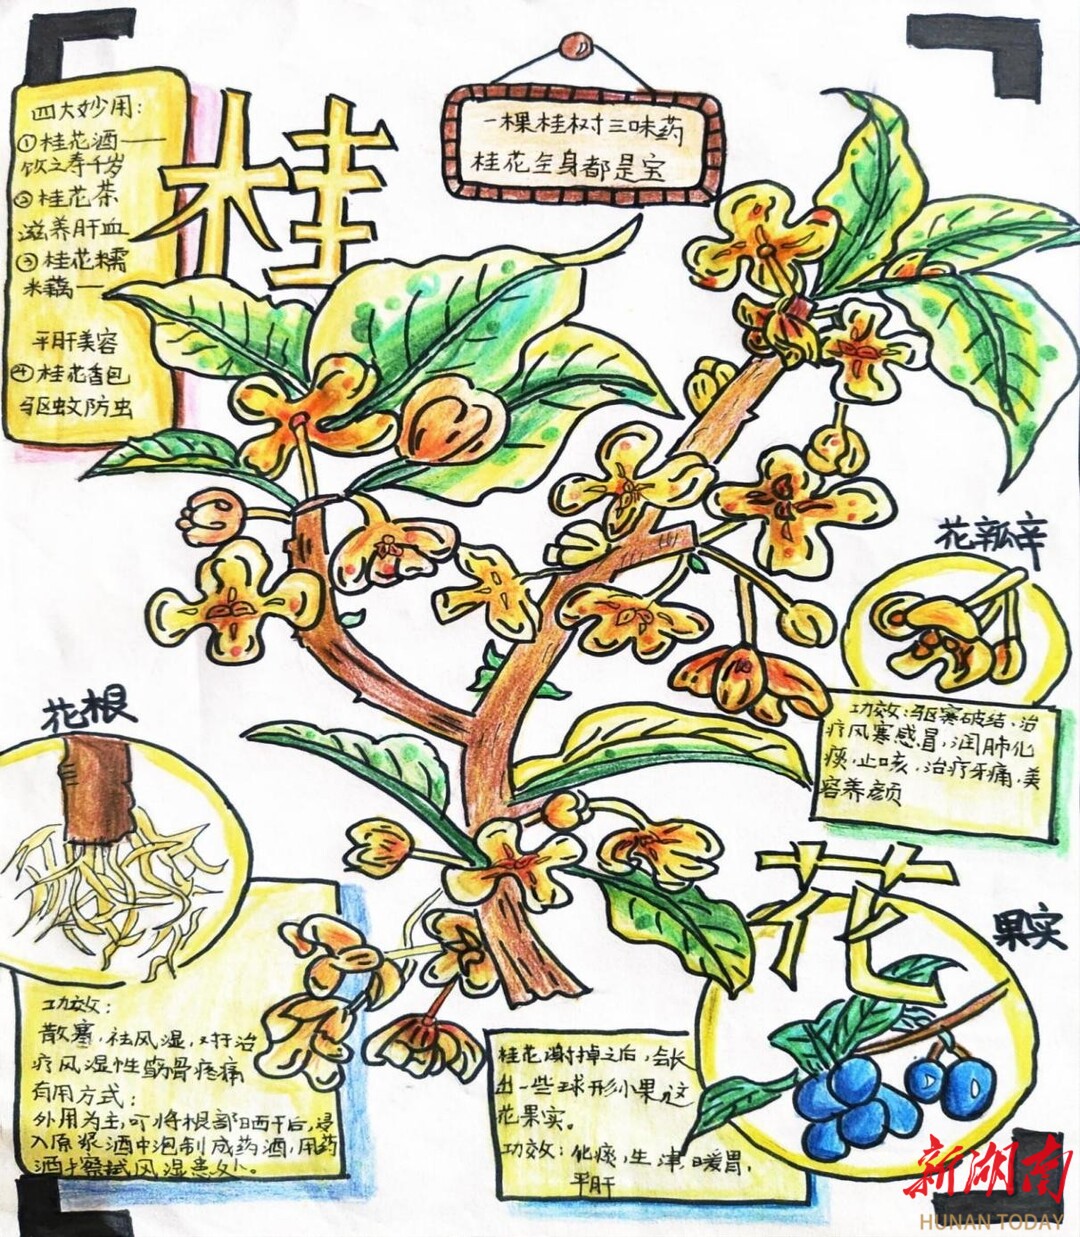 四大妙用：
①桂花酒——
饮之寿千岁
②桂花茶
滋养肝血
③桂花糯
米藕——
平肝美容
④桂花香包
驱蚊防虫
桂
一棵桂树三味药
桂花全身都是宝
花瓤辛
功效：驱寒破结、治
疗风寒感冒，润肺化
痰，止咳，治疗牙痛，美
容养颜
花根
功效：
散寒，祛风湿，对于治
疗风湿性筋骨疼痛
有用方式：
外用为主，可将根部晒干后，浸
入原浆酒中泡制成药酒，用药
酒擦拭风湿患处。
花
果实
桂花谢掉之后，会长
出一些球形小果这
花果实。
功效：化痰，生津，暖胃，
平肝
新湖南
HUNAN TODAY